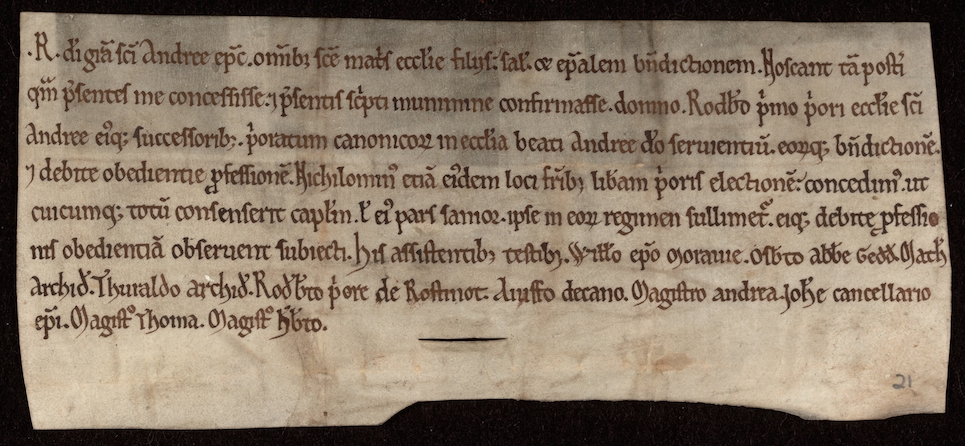 .R. dī grā sc̄i Andree ep̄c. om̄ib; sc̄e mat̄s eccl̄ie filijs: sal̄. ⁊ ep̄alem bn̄dictionem. Noscant tā post̄i
qm̄ p̄sentes me concessisse: ⁊ p̄sentis sc̄pti munimine confirmasse. domno. Rodb̄to p̄mo p̄ori eccl̄ie sc̄i
Andree eiꝰq; successorib;. p̄oratum canonicoꝝ in eccl̄ia beati Andree dō seruientiū. eoꝝq; bn̄dictionē.
⁊ debite obedientie ꝓfessionē. Nichilominꝰ etiā eiꝰdem loci fr̄ib; lib̄am p̄oris electionē: concedimꝰ. ut
cuicumq; totū consenserit capl̄m. ł eiꝰ pars sanior. ipse in eoꝝ regimen sullimet᷑. eiq; debitę ꝓfessio
nis obedientiā obseruent subiecti. His assistentib; testib;. Will̄o ep̄o Morauie. Osb̄to abb̄e Gedd̄. Math̄
Archid̄. Thuraldo archid̄. Rodb̄to p̄ore de Rostinot. Auisso decano. Magistro andrea. Joh̄e cancellario
ep̄i. Magist̊ Thoma. Magist̊ h̄b̄to.
21